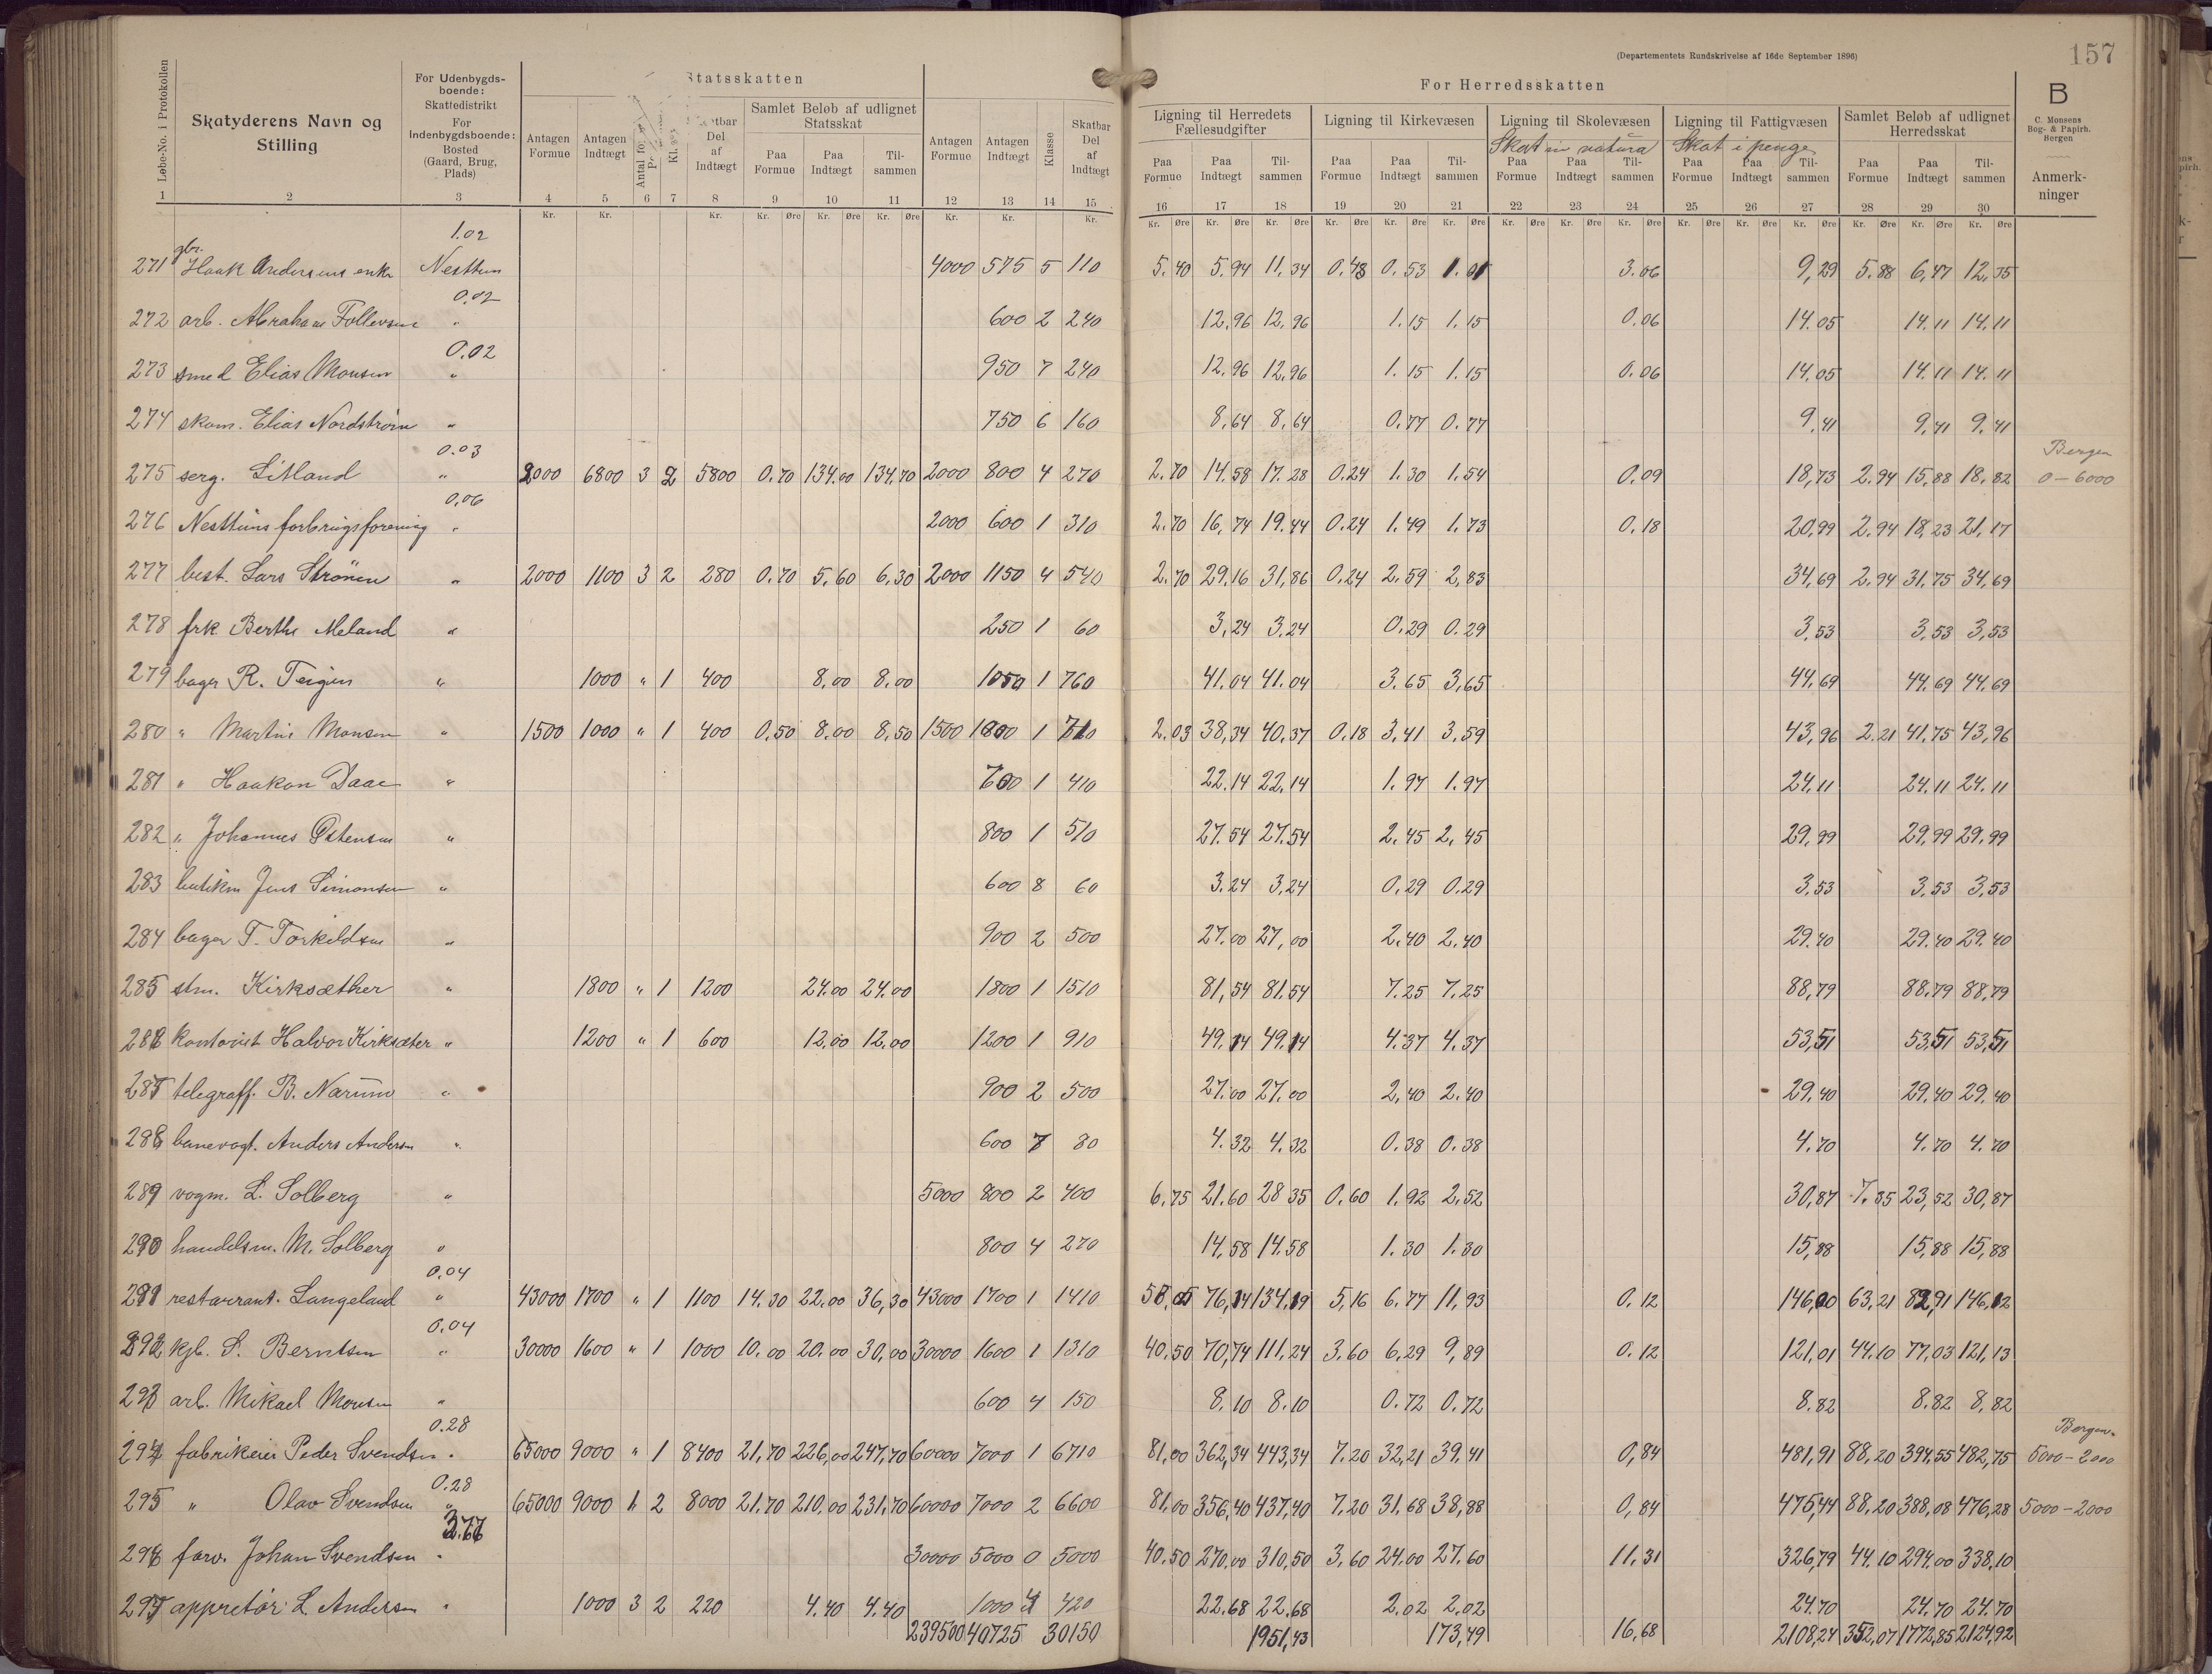 (Departementets Rundskrivelse af 16de September 1896)
157
Løbe-No. i Protokollen
Skatyderens Navn og Stilling
For Udenbygdsboende: Skattedistrikt For Indenbygdsboende: Bosted (Gaard, Brug, Plads)
Statsskatten
For Herredsskatten
B
C. Monsens Bog- & Papirh. Bergen
Antagen Formue
Antagen Indtægt
Kl.
Skatbar Del af Indtægt
Samlet Beløb af udlignet Statsskat
Paa Formue
Paa Indtægt
Tilsammen
Antagen Formue
Antagen Indtægt
Klasse
Skatbar Del af Indtægt
Ligning til Herredets Fællesudgifter
Ligning til Kirkevæsen
Ligning til Skolevæsen
Skat in natura
Ligning til Fattigvæsen
Skat i penge
Samlet Beløb af udlignet Herredsskat
Paa Formue Paa Indtægt Tilsammen
Paa Formue Paa Indtægt Tilsammen
Paa Formue Paa Indtægt Tilsammen
Paa Formue Paa Indtægt Tilsammen
Paa Formue Paa Indtægt Tilsammen
Anmerkninger
1 2 3 4 5 6 7 8 9 10 11 12 13 14 15 16 17 18 19 20 21 22 23 24 25 26 27 28 29 30
1.02
271 gbr. Haak Andersens enke Nesttun 4000 575 5 110 5.40 5.94 11,34 0.48 0.53 1.01 3.06 9,29 5.88 6,47 12,35
0.02
272 arb. Abraham Follevsen " 600 2 240 12,96 12,96 1.15 1.15 0.06 14.05 14.11 14.11
0.02
273 smed Elias Monsen " 950 7 240 12,96 12,96 1.15 1.15 0.06 14,05 14.11 14.11
274 skom. Elias Nordstrøm " 750 6 160 8,64 8,64 0.77 0.77 9,41 9,41 9.41
0.03 Bergen
275 serg. Litland " 2000 6800 3 2 5800 0.70 134.00 134,70 2000 800 4 270 2.70 14.58 17.28 0.24 1.30 1.54 0.09 18,73 2.94 15,88 18,82 0-6000
0,06
276 Nesttuns forbrugsforening " 2000 600 1 310 2.70 16,74 19.44 0.24 1.49 1.73 0.18 20,99 2.94 18,23 21,17
277 best. Lars Strønen " 2000 1100 3 2 280 0.70 5,60 6,30 2000 1150 4 540 2.70 29.16 31,86 0.24 2.59 2,83 34,69 2.94 31,75 34,69
278 frk Berthe Meland " 250 1 60 3,24 3.24 0.29 0.29 3,53 3,53 3,53
279 bager R. Teigen " 1000 " 1 400 8,00 8.00 1050 1 760 41.04 41.04 3.65 3,65 44,69 44,69 44,69
280 " Martin Monsen " 1500 1000 " 1 400 0.50 8,00 8,50 1500 1000 1 710 2.03 38,34 40,37 0,18 3,41 3,59 43,96 2.21 41,75 43,96
281 " Haakon Daae " 700 1 410 22.14 22,14 1.97 1.97 24,11 24.11 24.11
282 " Johannes Østensen " 800 1 510 27.54 27.54 2.45 2,45 29,99 29,99 29,99
283 butikm Jens Simonsen " 600 8 60 3.24 3,24 0.29 0.29 3,53 3,53 3,53
284 bager T. Torkildsen " 900 2 500 27.00 27,00 2.40 2.40 29.40 29.40 29.40
285 stm. Kirksæther " 1800 " 1 1200 24.00 24.00 1800 1 1510 81,54 81.54 7.25 7.25 88,79 88.79 88,79
286 kontorist Halvor Kirksæter " 1200 " 1 600 12.00 12.00 1200 1 910 49.14 49.14 4.37 4.37 53,51 53,51 53,51
287 telegraff. B. Narum " 900 2 500 27.00 27.00 2,40 2.40 29,40 29.40 29.40
288 banevogt. Anders Andersen " 600 7 80 4.32 4.32 0.38 0.38 4.70 4.70 4.70
289 vogm. L. Solberg " 5000 800 2 400 6.75 21.60 28 35 0.60 1.92 2,52 30,87 7.35 23,52 30,87
290 handelsm. M. Solberg " 800 4 270 14,58 14.58 1.30 1.30 15,88 15,88 15,88
0.04
291 restaurant. Langeland " 43000 1700 " 1 1100 14.30 22.00 36,30 43000 1700 1 1410 58,05 76,14 134.19 5,16 6.77 11,93 0,12 146,00 63,21 82,91 146,12
0.04
292 kjb. S. Berntsen " 30000 1600 " 1 1000 10.00 20.00 30,00 30000 1600 1 1310 40,50 70,74 111,24 3.60 6,29 9,89 0.12 121,01 44.10 77,03 121,13
293 arb. Mikael Monsen " 600 4 150 8.10 8.10 0.72 0.72 8.82 8.82 8,82
0.28 Bergen.
294 fabrikeier Peder Svendsen " 65000 9000 " 1 8400 21,70 226,00 247,70 60000 7000 1 6710 81,00 362,34 443,34 7.20 32,21 39,41 0,84 481,91 88,20 394,55 482,75 5000-2000
0.28
295 " Olav Svendsen " 65000 9000 1 2 8000 21.70 210,00 231,70 60000 7000 2 6600 81.00 356,40 437,40 7,20 31,68 38,88 0,84 475,44 88,20 388,08 476,28 5000-2000
3.77
296 farv. Johan Svendsen " 30000 5000 0 5000 40.50 270.00 310,50 3,60 24.00 27.60 11,31 326,79 44.10 294.00 338,10
297 appretør L. Andersen " 1000 3 2 220 4.40 4.40 1000 4 420 22,68 22,68 2.02 2,02 24.70 24.70 24.70
239500 40725 30150 1951,43 173,49 16,68 2108,24 352,07 1772,85 2124,92